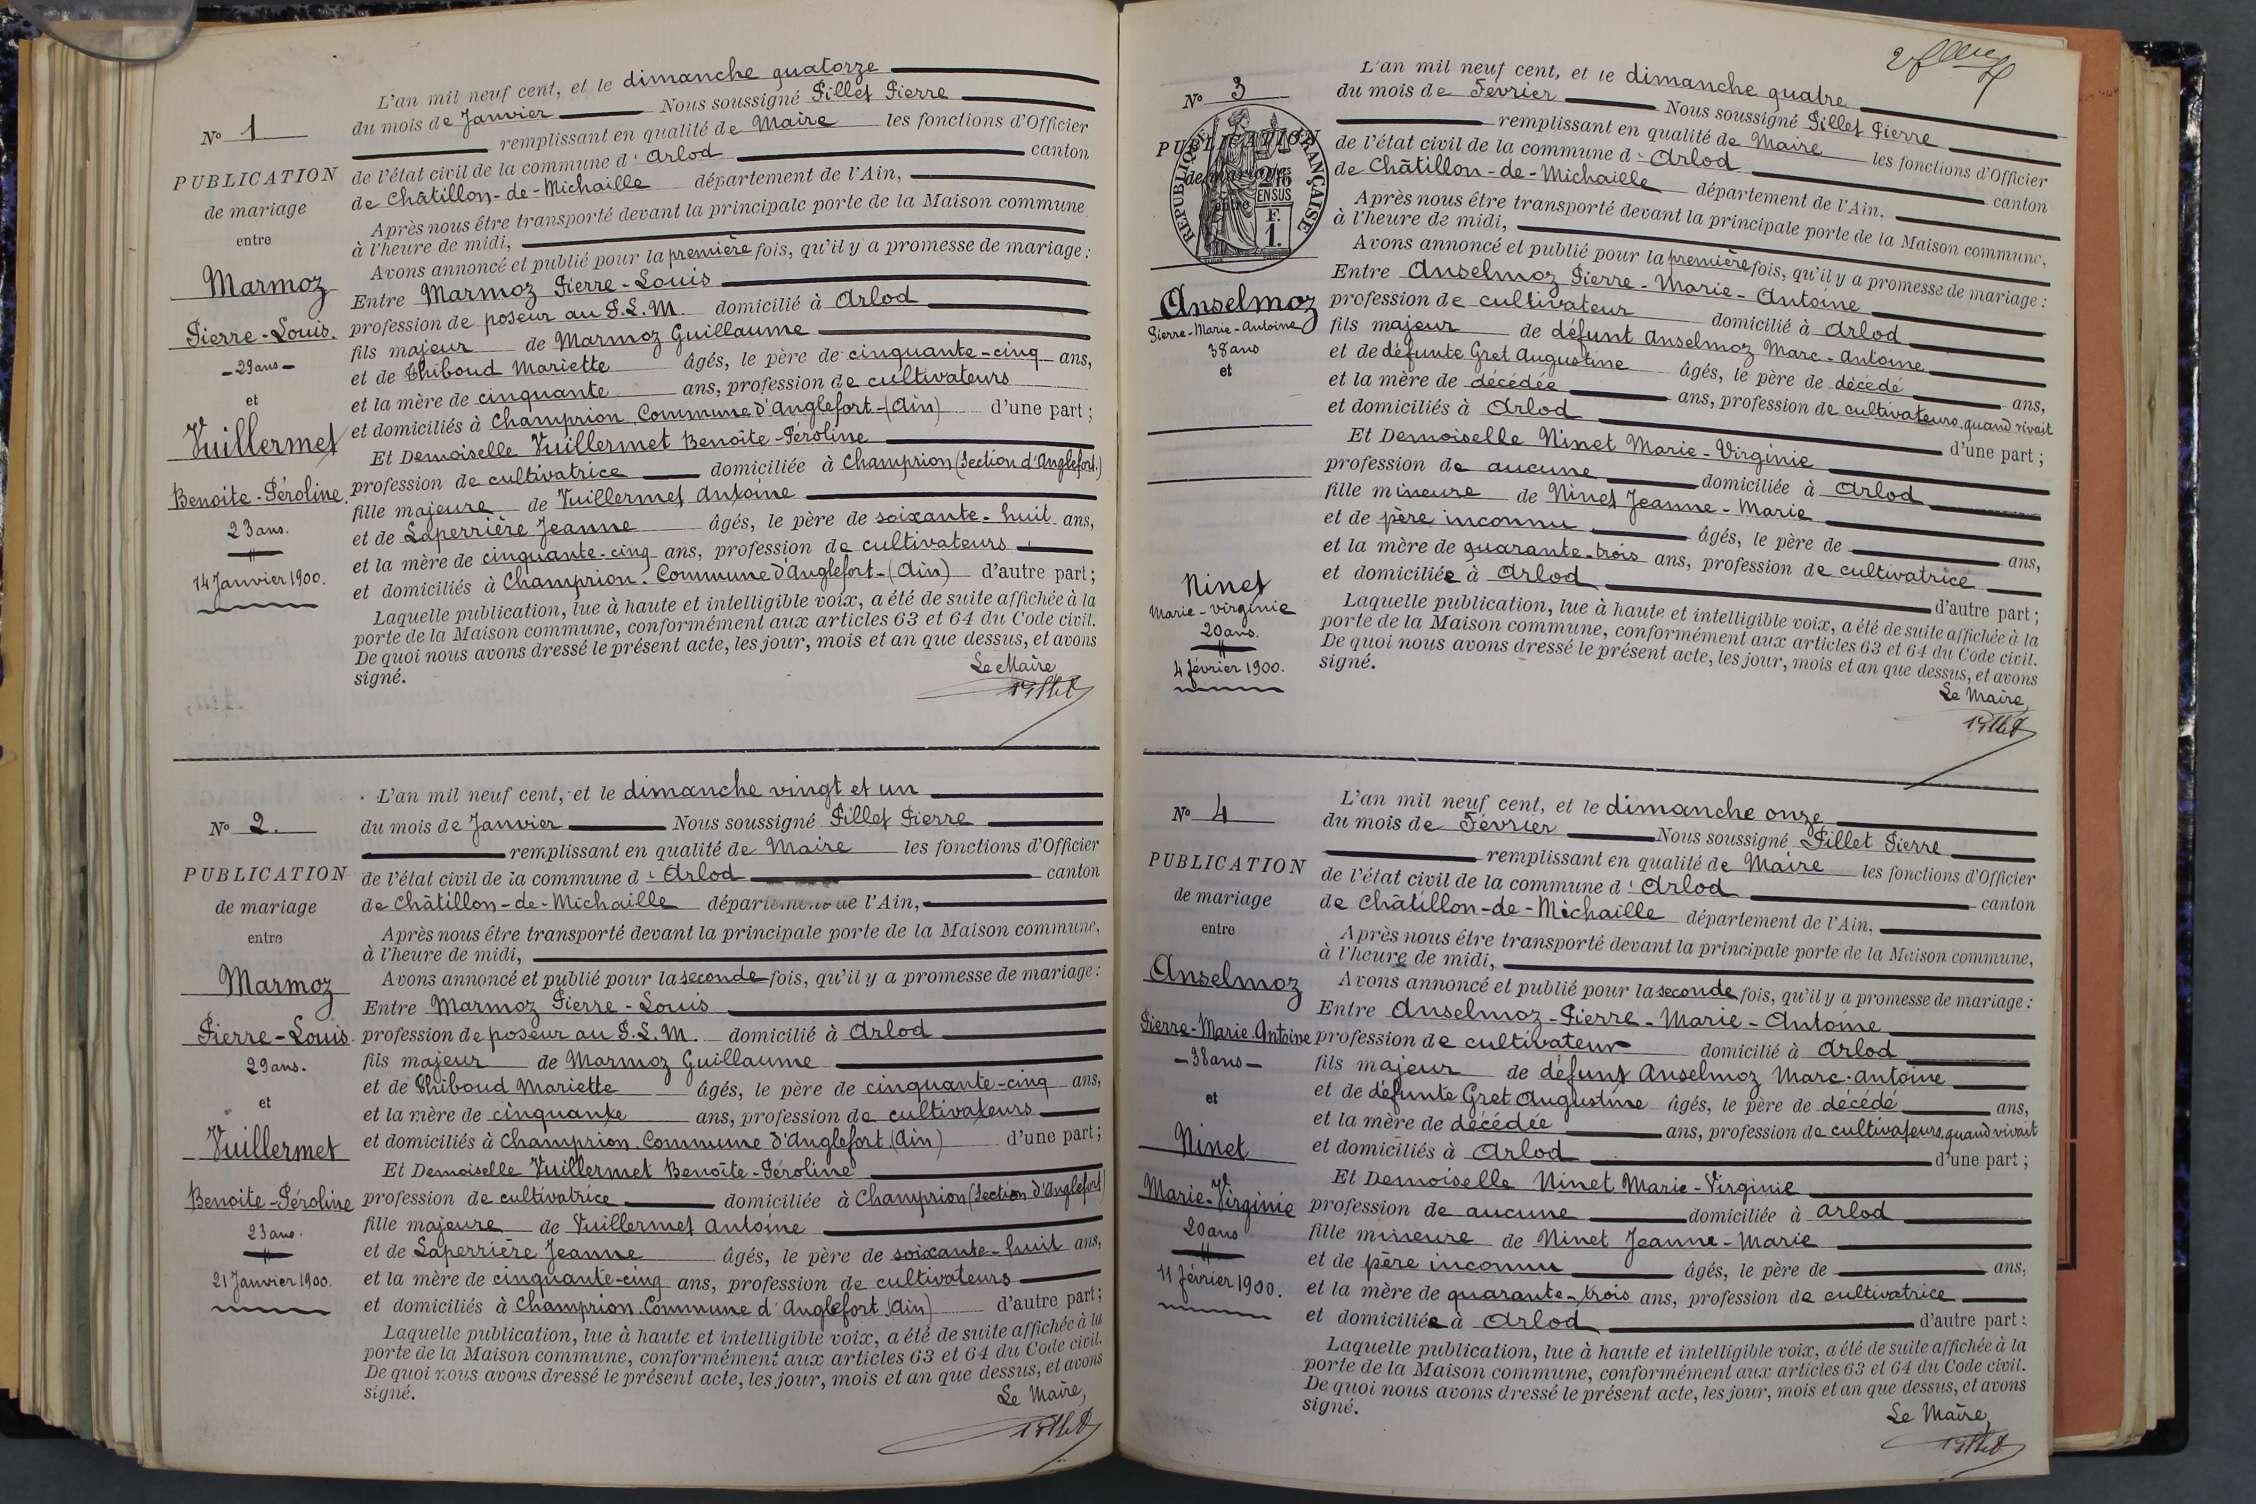 N° 1
PUBLICATION
de mariage
entre
Marmoz
Pierre-Louis.
-29 ans-
et
Vuillermet
Benoite-Péroline.
23 ans.
14 Janvier 1900.
L'an mil neuf cent, et le dimanche quatorze
du mois de Janvier Nous soussigné Pillet Pierre
remplissant en qualité de Maire les fonctions d'Officier
de l'état civil de la commune d' Arlod canton
de Châtillon-de-Michaille département de l'Ain,
Après nous être transporté devant la principale porte de la Maison commune
à l'heure de midi,
Avons annoncé et publié pour la première fois, qu'il y a promesse de mariage:
Entre Marmoz Pierre-Louis
profession de poseur au P.L.M. domicilié à Arlod
fils majeur de Marmoz Guillaume
et de Thiboud Mariette âgés, le père de cinquante-cinq ans,
et la mère de cinquante ans, profession de cultivateurs
et domiciliés à Champrion Commune d'Anglefort-(Ain) d'une part;
Et Demoiselle Vuillermet Benoîte-Péroline
profession de cultivatrice domiciliée à Champrion (Section d'Anglefort.)
fille majeure de Vuillermet Antoine
et de Laperrière Jeanne âgés, le père de soixante-huit ans,
et la mère de cinquante-cinq ans, profession de cultivateurs
et domiciliés à Champrion. Commune d'Anglefort-(Ain) d'autre part;
Laquelle publication, lue à haute et intelligible voix, a été de suite affichée à la
porte de la Maison commune, conformément aux articles 63 et 64 du Code civil.
De quoi nous avons dressé le présent acte, les jour, mois et an que dessus, et avons
signé.
Le Maire
Pillet
N° 2.
PUBLICATION
de mariage
entre
Marmoz
Pierre-Louis.
29 ans.
et
Vuillermet
Benoite-Péroline
23 ans.
21 Janvier 1900.
L'an mil neuf cent, et le dimanche vingt et un
du mois de Janvier Nous soussigné Pillet Pierre
remplissant en qualité de Maire les fonctions d'Officier
de l'état civil de la commune d' Arlod canton
de Châtillon-de-Michaille département de l'Ain,
Après nous être transporté devant la principale porte de la Maison commune,
à l'heure de midi,
Avons annoncé et publié pour la seconde fois, qu'il y a promesse de mariage:
Entre Marmoz Pierre-Louis
profession de poseur au P.L.M. domicilié à Arlod
fils majeur de Marmoz Guillaume
et de Thiboud Mariette âgés, le père de cinquante-cinq ans,
et la mère de cinquante ans, profession de cultivateurs
et domiciliés à Champrion Commune d'Anglefort (Ain) d'une part;
Et Demoiselle Vuillermet Benoîte-Péroline
profession de cultivatrice domiciliée à Champrion (Section d'Anglefort)
fille majeure de Vuillermet Antoine
et de Laperrière Jeanne âgés, le père de soixante-huit ans,
et la mère de cinquante-cinq ans, profession de cultivateurs
et domiciliés à Champrion. Commune d'Anglefort (Ain) d'autre part;
Laquelle publication, lue à haute et intelligible voix, a été de suite affichée à la
porte de la Maison commune, conformément aux articles 63 et 64 du Code civil.
De quoi nous avons dressé le présent acte, les jour, mois et an que dessus, et avons
signé.
Le Maire,
Pillet
N° 3
PUBLICATION
de mariage
entre
RÉPUBLIQUE FRANÇAISE
2/10 EN SUS
F.
1.
Anselmoz
Pierre-Marie-Antoine
38 ans
et
Ninet
Marie-Virginie
20 ans.
4 février 1900.
L'an mil neuf cent, et le dimanche quatre
du mois de Février Nous soussigné Pillet Pierre
remplissant en qualité de Maire les fonctions d'Officier
de l'état civil de la commune d' Arlod canton
de Châtillon-de-Michaille département de l'Ain,
Après nous être transporté devant la principale porte de la Maison commune,
à l'heure de midi,
Avons annoncé et publié pour la première fois, qu'il y a promesse de mariage:
Entre Anselmoz Pierre-Marie-Antoine
profession de cultivateur domicilié à Arlod
fils majeur de défunt Anselmoz Marc-Antoine
et de défunte Gret Augustine âgés, le père de décédé ans,
et la mère de décédée ans, profession de cultivateurs quand vivait
et domiciliés à Arlod d'une part;
Et Demoiselle Ninet Marie-Virginie
profession de aucune domiciliée à Arlod
fille mineure de Ninet Jeanne-Marie
et de père inconnu âgés, le père de ans,
et la mère de quarante-trois ans, profession de cultivatrice
et domiciliée à Arlod d'autre part;
Laquelle publication, lue à haute et intelligible voix, a été de suite affichée à la
porte de la Maison commune, conformément aux articles 63 et 64 du Code civil.
De quoi nous avons dressé le présent acte, les jour, mois et an que dessus, et avons
signé.
Le Maire,
Pillet
N° 4
PUBLICATION
de mariage
entre
Anselmoz
Pierre-Marie Antoine
-38 ans-
et
Ninet
Marie-Virginie
20 ans
11 février 1900.
L'an mil neuf cent, et le dimanche onze
du mois de Février Nous soussigné Pillet Pierre
remplissant en qualité de Maire les fonctions d'Officier
de l'état civil de la commune d' Arlod canton
de Châtillon-de-Michaille département de l'Ain,
Après nous être transporté devant la principale porte de la Maison commune,
à l'heure de midi,
Avons annoncé et publié pour la seconde fois, qu'il y a promesse de mariage:
Entre Anselmoz-Pierre-Marie-Antoine
profession de cultivateur domicilié à Arlod
fils majeur de défunt Anselmoz Marc-Antoine
et de défunte Gret Augustine âgés, le père de décédé ans,
et la mère de décédée ans, profession de cultivateurs quand vivait
et domiciliés à Arlod d'une part;
Et Demoiselle Ninet Marie-Virginie
profession de aucune domiciliée à Arlod
fille mineure de Ninet Jeanne-Marie
et de père inconnu âgés, le père de ans,
et la mère de quarante-trois ans, profession de cultivatrice
et domiciliée à Arlod d'autre part:
Laquelle publication, lue à haute et intelligible voix, a été de suite affichée à la
porte de la Maison commune, conformément aux articles 63 et 64 du Code civil.
De quoi nous avons dressé le présent acte, les jour, mois et an que dessus, et avons
signé.
Le Maire,
Pillet